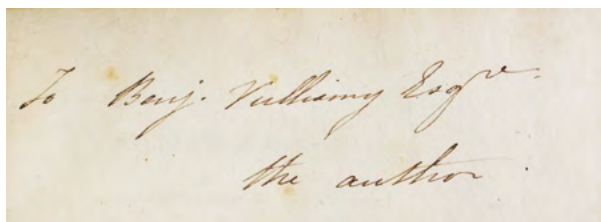 To Benj. Vulliamy Esqre.
the author.